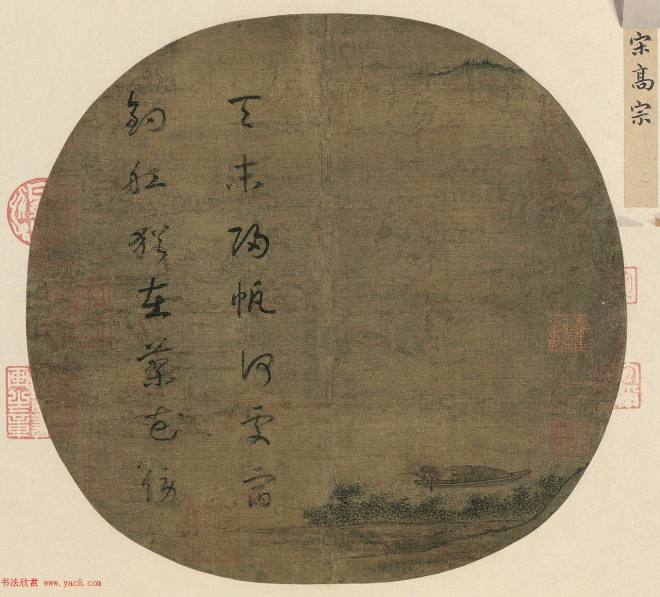 宋高宗
天末歸帆何處宿
釣舡猶在蓼花傍
书法欣赏 www.yac8.com